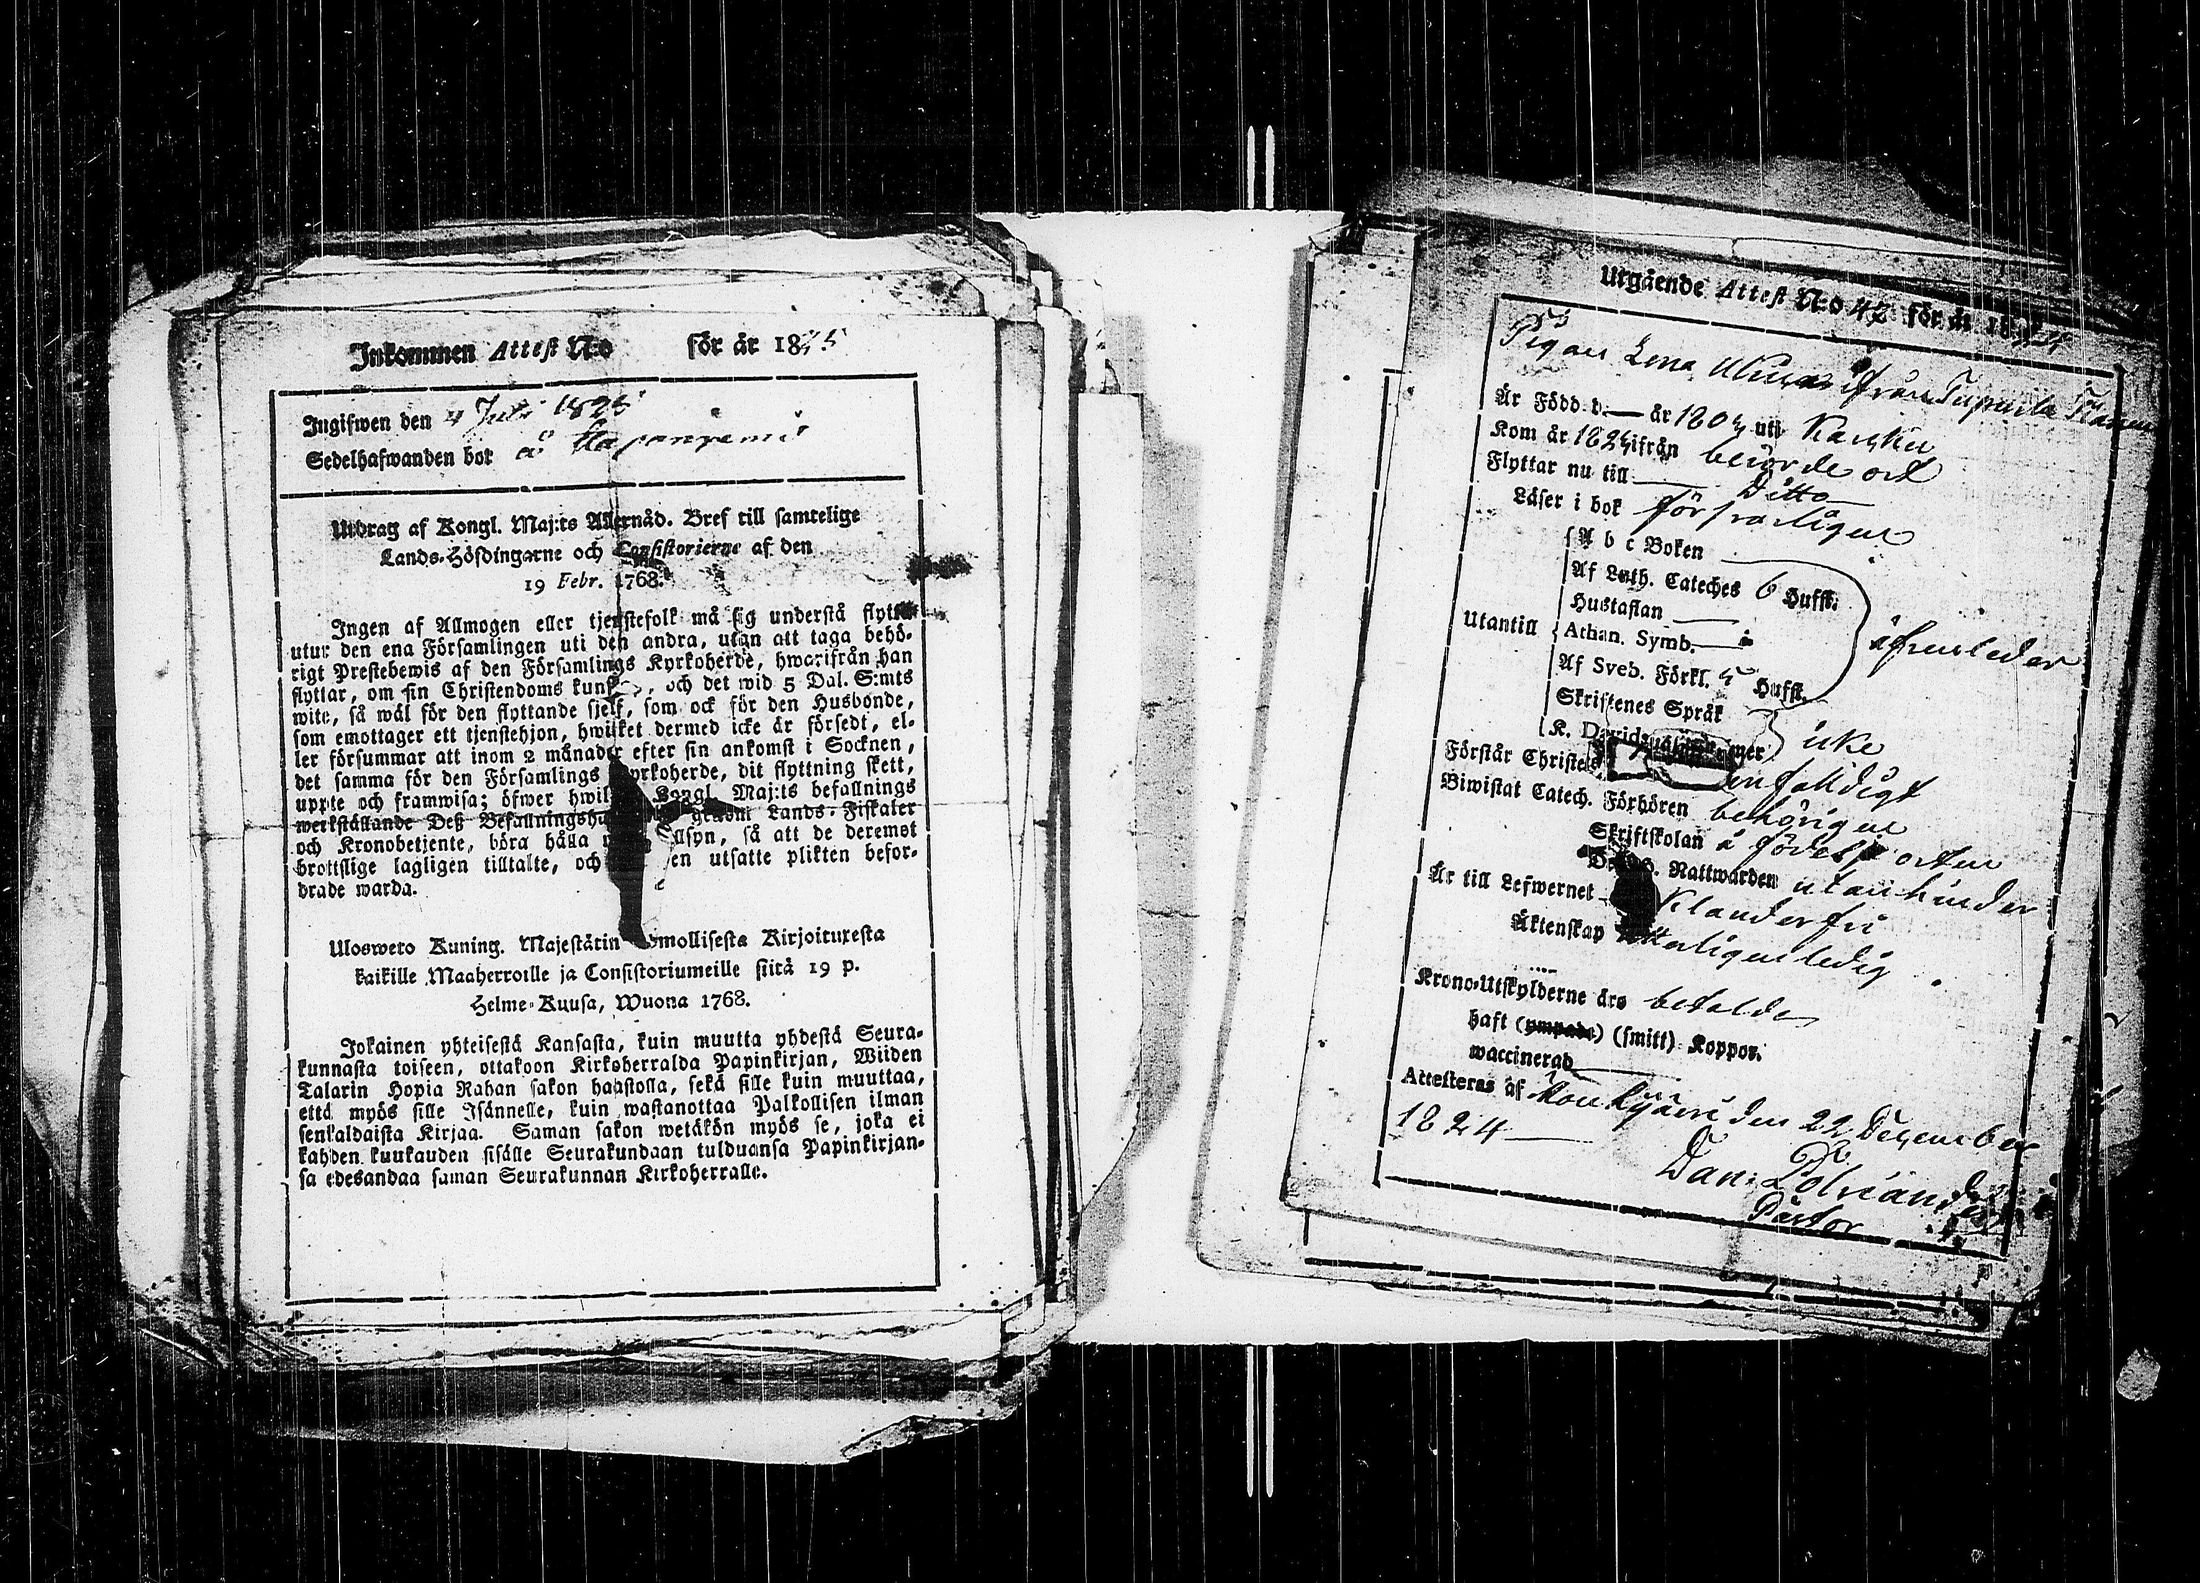 Inkommen Attest N:o för år 1825
Ingifwen den 4 Juli 1825
Sedelhafwanden bor å Haapaniemi
Utdrag af Kongl. Maj:ts Allernåd. Bref till samtelige
Lands-Höfdingarne och Consistorierne af den
19 Febr. 1768.
Ingen af Allmogen eller tjenstefolk må sig understå flytta
utur den ena Församlingen uti den andra, utan att taga behö-
rigt Prestebewis af den Församlings Kyrkoherde, hwarifrån han
flyttar, om sin Christendoms kunskap, och det wid 5 Dal. S:mts
wite, så wäl för den flyttande sjelf, som ock för den Husbonde,
som emottager ett tjenstehjon, hwilket dermed icke är försedt, el-
ler försummar att inom 2 månader efter sin ankomst i Socknen,
det samma för den Församlings Kyrkoherde, dit flyttning skett,
uppte och framwisa; öfwer hwil Kongl. Maj:ts befallnings
werkställande Deß Befallningsha genom Lands-Fiskaler
och Kronobetjente, böra hålla illsyn, så att de deremot
brottslige lagligen tilltalte, och en utsatte plikten befor-
drade warda.
Ulosweto Kuning. Majestätin Armollisesta Kirjoituxesta
kaikille Maaherroille ja Consistoriumeille siitä 19 p.
Helme-Kuusa, Wuona 1768.
Jokainen yhteisestä Kansasta, kuin muutta yhdestä Seura-
kunnasta toiseen, ottakoon Kirkoherralda Papinkirjan, Wiiden
Talarin Hopia Rahan sakon haastolla, sekä sille kuin muuttaa,
että myös sille Isännelle, kuin wastanottaa Palkollisen ilman
senkaldaista Kirjaa. Saman sakon wetäkön myös se, joka ei
kahden kuukauden sisälle Seurakundaan tulduansa Papinkirjan-
sa edesandaa saman Seurakunnan Kirkoherralle.
Utgående Attest N:o 42 för år 1824
Pigan Lena ifrån
Är Född d. — år 180 uti Karsku
Kom år 1824 ifrån berörde ort
Flyttar nu till — Ditto —
Läser i bok försvarligen
A b c Boken
Af Luth. Cateches 6 Hufst.
Hustaflan —
Utantill Athan. Symb. — äfvenledes
Af Sveb. Förkl. 5 Hufst.
Skriftenes Språk
K. Davids icke
Förstår Christe enfaldigt
Biwistat Catech. Förhören behörigen
Skriftskolan å födelse orten
D. H. Nattwarden utan hinder
Är till Lefwernet Klanderfri
Äktenskap ledig
Krono-Utskylderne äro betalde
haft (ympade) (smitt) Koppor.
waccinerad —
Attesteras af Moukijärvi den 22 December
1824 —
Dan: Polviander
Pastor